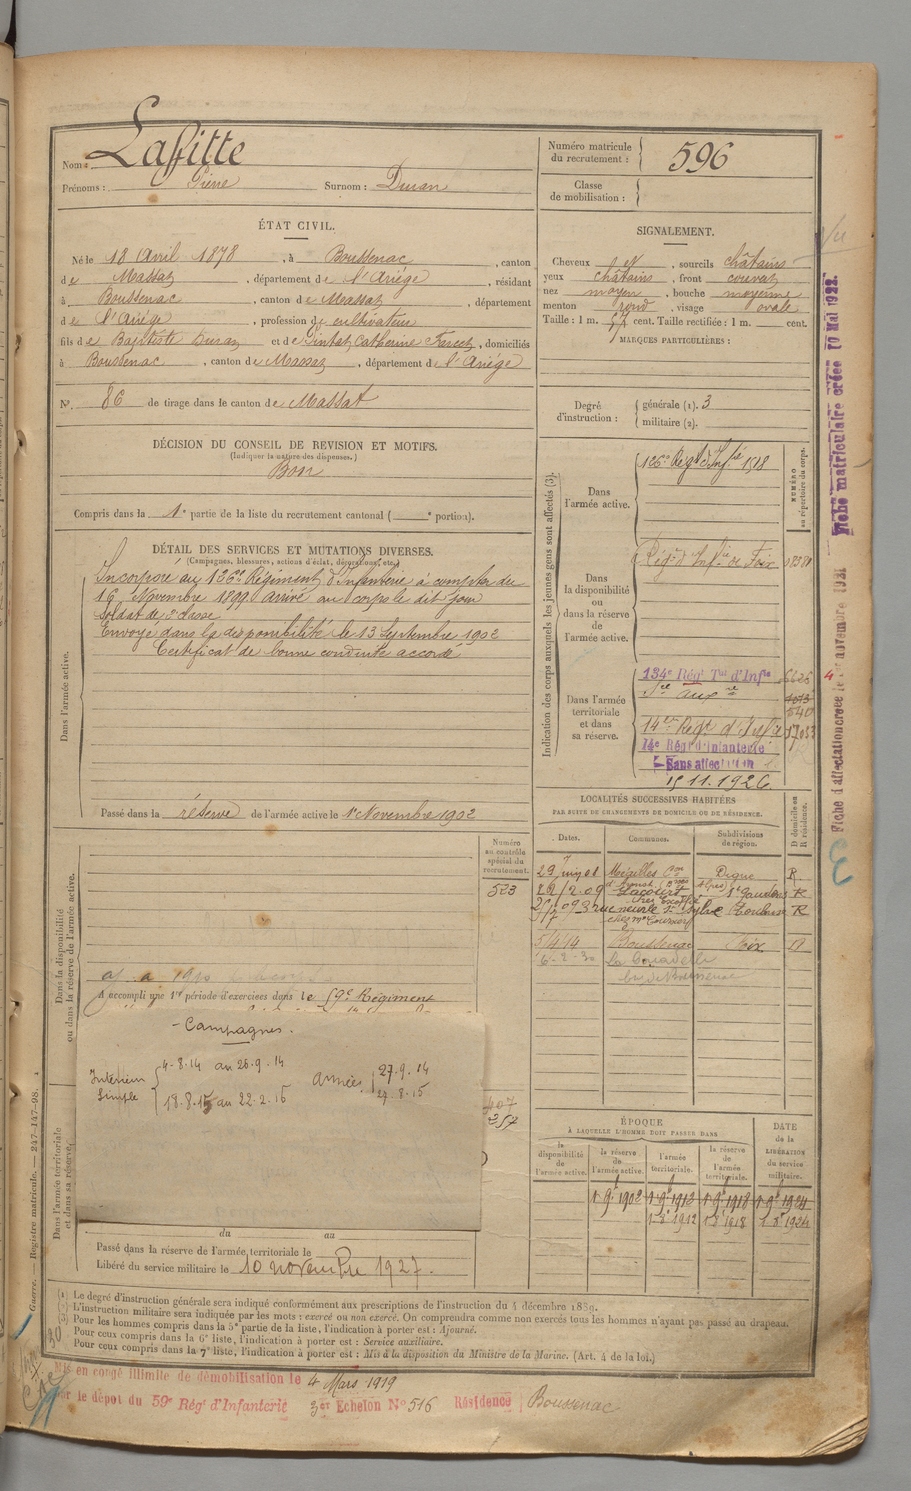 Nom : Lafitte
Prénoms : Pierre Surnom : Duran
Numéro matricule du recrutement : 596
Classe de mobilisation :
ÉTAT CIVIL.
Né le 18 Avril 1878, à Boussenac, canton
de Massat, département de l'Ariège, résidant
à Boussenac, canton de Massat, département
de l'Ariège, profession de cultivateur
fils de Baptiste Duran et de Catherine, domiciliés
à Boussenac, canton de Massat, département de l'Ariège
N° 86 de tirage dans le canton de Massat
SIGNALEMENT.
Cheveux , sourcils châtains
yeux châtains, front couvert
nez moyen, bouche moyenne
menton rond, visage ovale
Taille : 1 m. 57 cent. Taille rectifiée : 1 m. cent.
MARQUES PARTICULIÈRES :
Degré d'instruction : générale (1). 3
militaire (2).
DÉCISION DU CONSEIL DE REVISION ET MOTIFS.
(Indiquer la nature des dispenses.)
Bon
Compris dans la 1e partie de la liste du recrutement cantonal ( e portion).
DÉTAIL DES SERVICES ET MUTATIONS DIVERSES.
(Campagnes, blessures, actions d'éclat, décorations, etc.)
Dans l'armée active.
Incorporé au 126e Régiment d'Infanterie à compter du
16 Novembre 1899 arrivé au corps le dit jour
soldat de 2e classe
Envoyé dans la disponibilité le 13 Septembre 1902
Certificat de bonne conduite accordé
Passé dans la réserve de l'armée active le 1er Novembre 1902
Indication des corps auxquels les jeunes gens sont affectés (3).
NUMÉRO au répertoire du corps.
Dans l'armée active.
126e Régt d'Infie
Dans la disponibilité ou dans la réserve de l'armée active.
Régt d'Infie de Foix
Dans l'armée territoriale et dans sa réserve.
134e Régt Tal d'Infie
14e Régt d'Infie
14e Régt d'Infanterie
Sans affectation
15.11.1926
LOCALITÉS SUCCESSIVES HABITÉES
PAR SUITE DE CHANGEMENTS DE DOMICILE OU DE RÉSIDENCE.
Dates. Communes. Subdivisions de région. D domicile ou R résidence.
Digne R
Lacourt St Gaudens R
Toulouse R
5/4/14 Boussenac Foix
6-2-30
Dans la disponibilité ou dans la réserve de l'armée active.
Numéro au contrôle spécial du recrutement.
523
A accompli une 1re période d'exercices dans le 59e Régiment
Campagnes.
Intérieur simple 4-8-14 au 26-9-14
18-8-15 au 22-2-16
Armées 27-9-14
27-8-15
257
Dans l'armée territoriale et dans sa réserve.
du au
Passé dans la réserve de l'armée territoriale le
Libéré du service militaire le 10 novembre 1927.
ÉPOQUE
À LAQUELLE L'HOMME DOIT PASSER DANS
DATE de la LIBÉRATION du service militaire.
la disponibilité de l'armée active. la réserve de l'armée active. l'armée territoriale. la réserve de l'armée territoriale.
1 9e 1902 1 9e 1912 1 9e 1918 1 9e 1924
1 8e 1912 1 8e 1918 1 8e 1924
(1) Le degré d'instruction générale sera indiqué conformément aux prescriptions de l'instruction du 4 décembre 1889.
(2) L'instruction militaire sera indiquée par les mots : exercé ou non exercé. On comprendra comme non exercés tous les hommes n'ayant pas passé au drapeau.
(3) Pour les hommes compris dans la 5e partie de la liste, l'indication à porter est : Ajourné.
Pour ceux compris dans la 6e liste, l'indication à porter est : Service auxiliaire.
Pour ceux compris dans la 7e liste, l'indication à porter est : Mis à la disposition du Ministre de la Marine. (Art. 4 de la loi.)
Mis en congé illimité de démobilisation le 4 Mars 1919
le dépôt du 59e Régt d'Infanterie 3er Echelon N° 516 Résidence Boussenac
Guerre. — Registre matricule. — 247-147-98.
Fiche matriculaire créée 10 Mai 1922.
Fiche d'affectation créée le 1er novembre 1931